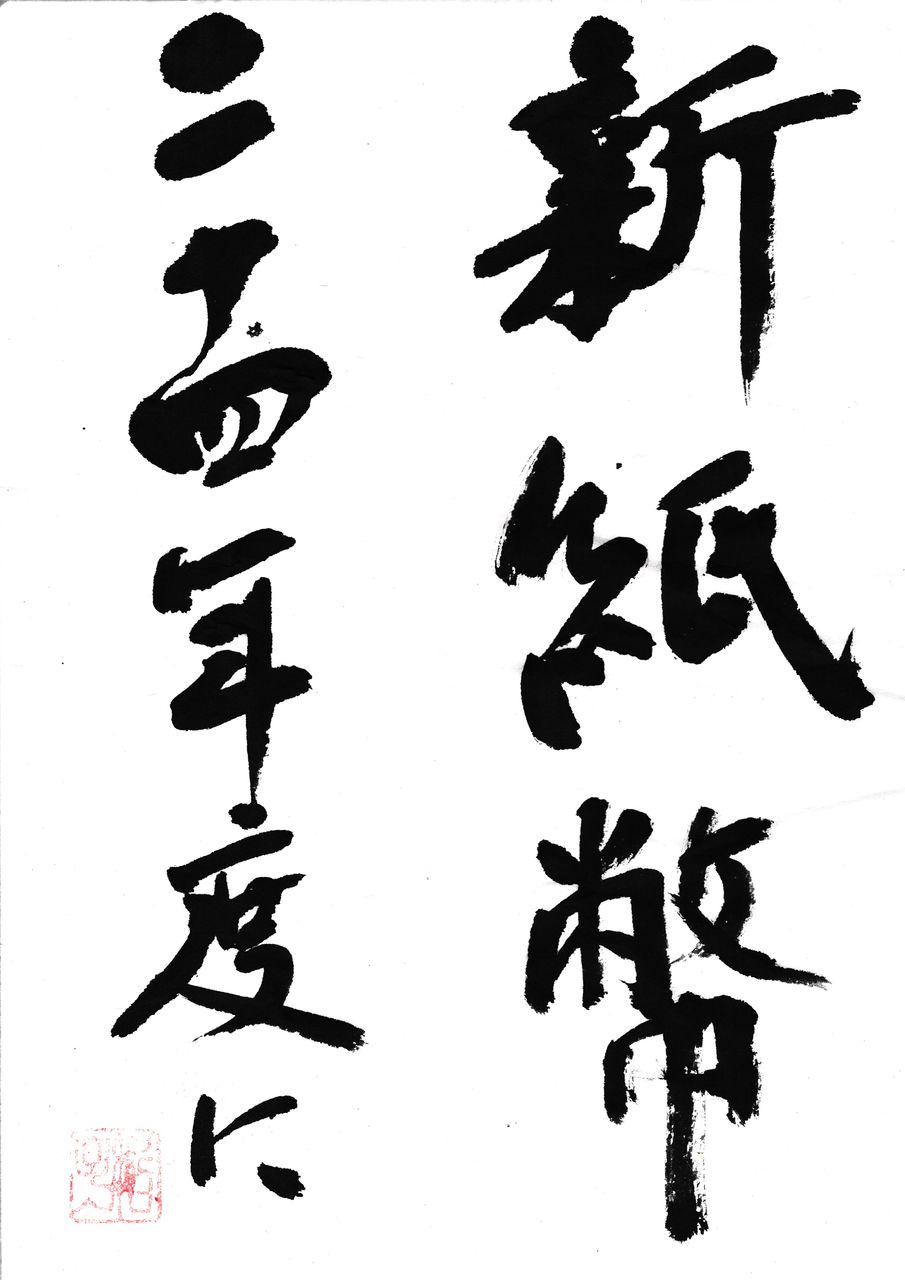 新紙幣
二十四年度に